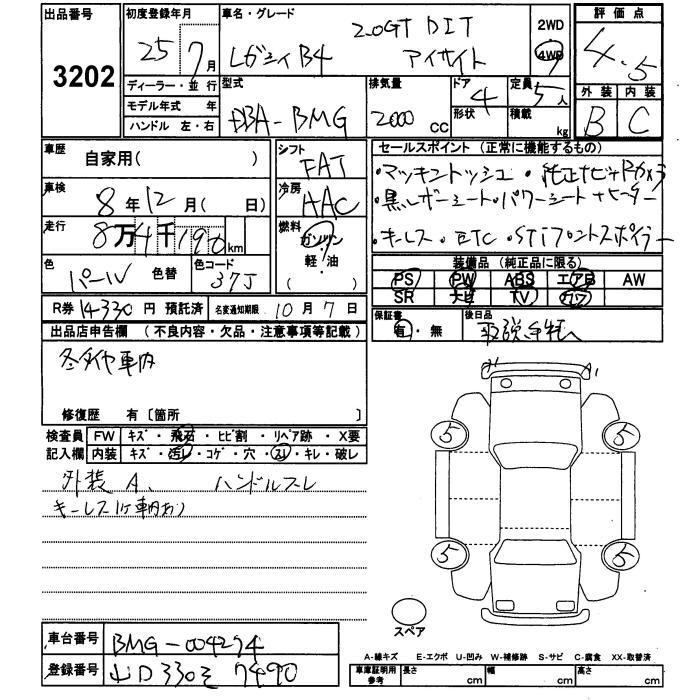 出品番号 初度登録年月 車名・グレード 評価点
3202 25 7月 レガシィB4 2.0GT DIT アイサイト 2WD 4WD 4.5
ディーラー・並行 型式 排気量 ドア 定員 外装 内装
モデル年式 年 DBA-BMG 2000 CC 4 5人 B C
ハンドル 左・右 形状 積載 kg
車歴 シフト セールスポイント (正常に機能するもの)
自家用( ) FAT ・マッキントッシュ・純正ナビ+
車検 冷房 ・黒レザーシート・パワーシート+ヒーター
8年12月( 日) AAC ・キーレス・ETC・STIフロントスポイラー
走行 燃料
8万4千190km ガソリン
軽・油
( )
色 色替 色コード 装備品 (純正品に限る)
パール 37J PS PW ABS エアB AW
SR ナビ TV カワ
R券 14330円 預託済 名変通知期限 10月7日 保証書 後日品
出品店申告欄 (不良内容・欠品・注意事項等記載) 有・無 取説
冬タイヤ車内
修復歴 有〔箇所 〕
検査員 FW キズ・飛石・ヒビ割・リペア跡・X要
記入欄 内装 キズ・汚レ・コゲ・穴・スレ・キレ・破レ
外装 A、 ハンドルスレ
キーレス1ケ車内あり
5 5
5 5
スペア
車台番号 BMG-004274
登録番号 330 7490
A-線キズ E-エクボ U-凹み W-補修跡 S-サビ C-腐食 XX-取替済
車庫証明用参考 長さ cm 幅 cm 高さ cm